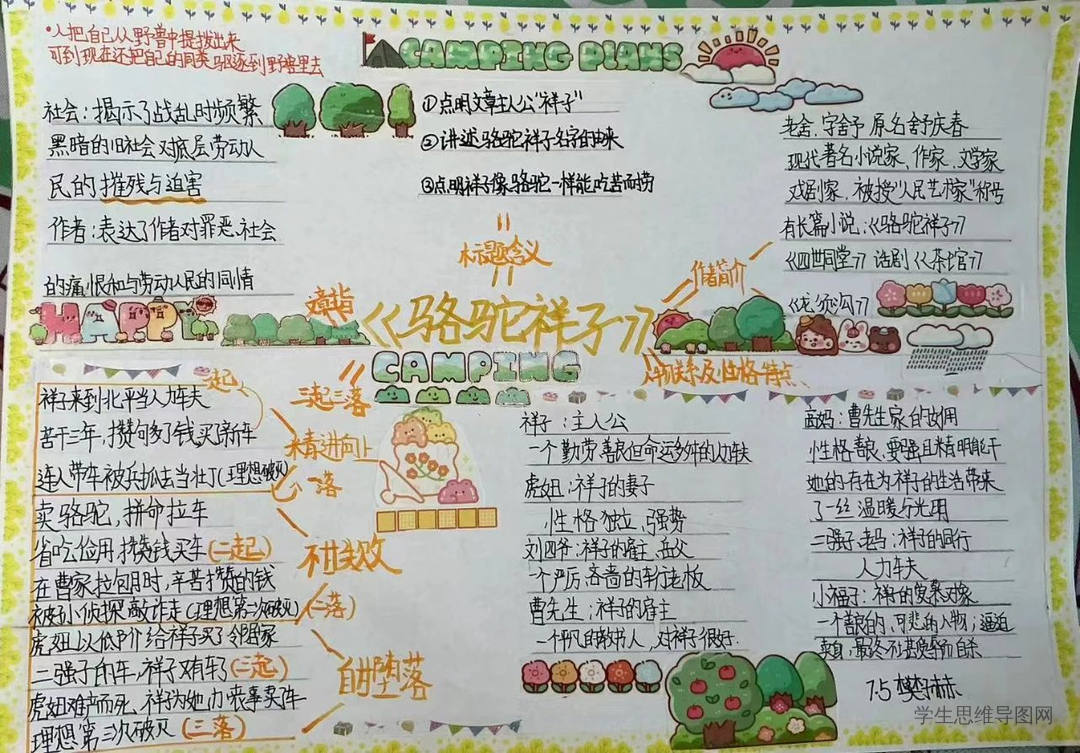 •人把自己从野兽中提拔出来
可到现在还把自己的同类驱逐到野兽里去
CAMPING PLANS
社会：揭示了战乱时频繁
黑暗的旧社会对底层劳动人
民的摧残与迫害
作者：表达了作者对罪恶社会
的痛恨和与劳动人民的同情
①点明文章主人公“祥子”
②讲述骆驼祥子名字的由来
③点明祥子像骆驼一样能吃苦而耐劳
标题含义
老舍，字舍予 原名舒庆春
现代著名小说家、作家、文学家
戏剧家、被授“人民艺术家”称号
有长篇小说：《骆驼祥子》
《四世同堂》话剧《茶馆》
《龙须沟》
作者简介
HAPPY
《骆驼祥子》
CAMPING
人物关系及性格特点
三起三落
一起
祥子来到北平当人力车夫
苦干三年，攒够钱买新车
连人带车被兵抓去当壮丁（理想破灭）
一落
卖骆驼，拼命拉车
省吃俭用攒钱买车（二起）
在曹家拉包月时，辛苦攒的钱
被孙侦探敲诈走（理想第二次破灭）
（二落）
虎妞以低价给祥子买了邻居家
二强子的车，祥子又有车了（三起）
虎妞难产而死，祥子为她办丧事卖车
理想第三次破灭（三落）
进向上
不甘失败
自甘堕落
祥子：主人公
一个勤劳善良但命运多舛的人力车夫
虎妞：祥子的妻子
性格独立、强势
刘四爷：祥子的雇主、岳父
一个严厉吝啬的车行老板
曹先生：祥子的雇主
一个平凡的教书人，对祥子很好.
高妈：曹先生家的女佣
性格善良、要强且精明能干
她的存在为祥子的生活带来
了一丝温暖与光明
二强子、老马：祥子的同行
人力车夫
小福子：祥子的发慕对象
一个善良的、可悲的人物；逼迫
卖身，最终不堪忍辱而自杀
7.5
学生思维导图网